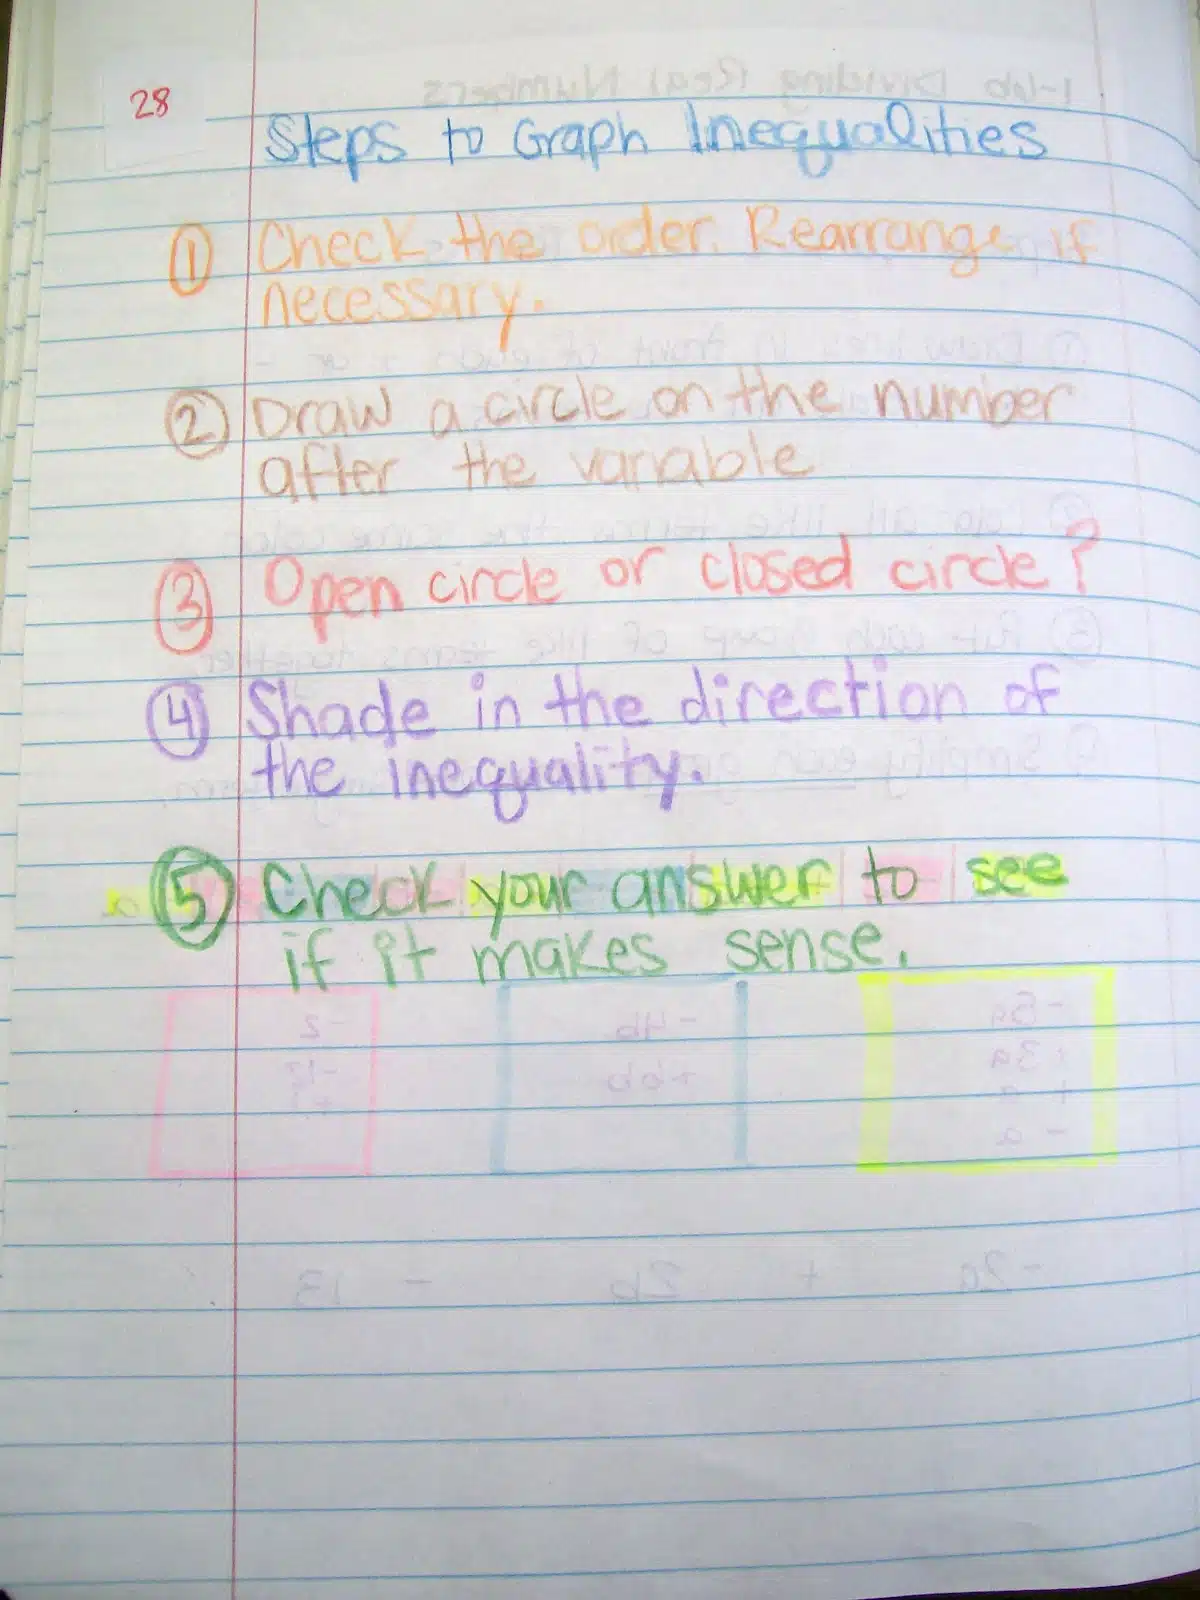 28
Steps to Graph Inequalities
① Check the order. Rearrange if
necessary.
② Draw a circle on the number
after the variable
③ Open circle or closed circle?
④ Shade in the direction of
the inequality.
⑤ Check your answer to see
if it makes sense.